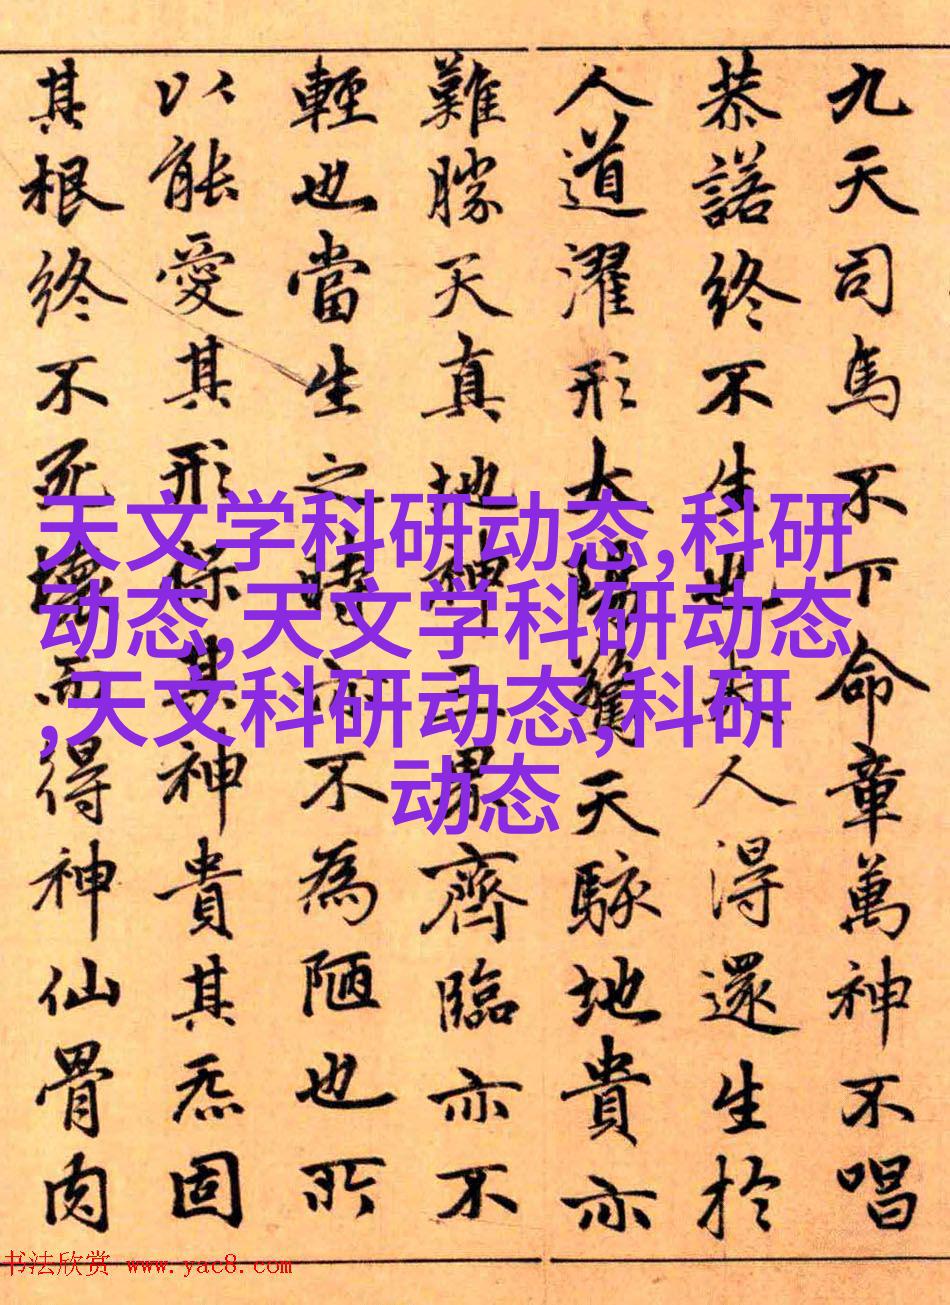 九天司馬不下命章萬神不唱
恭諾終不生也夫人得還生於
人道濯形太陽驚天駭地貴亦
難勝天真地神三界齊臨亦不
輕也當生之時亦不為陋也所
以能愛其形保其神貴其炁固
其根終不死壞而得神仙骨肉
天文学科研动态,科研
动态,天文学科研动态
,天文科研动态,科研
动态
书法欣赏 www.yac8.com